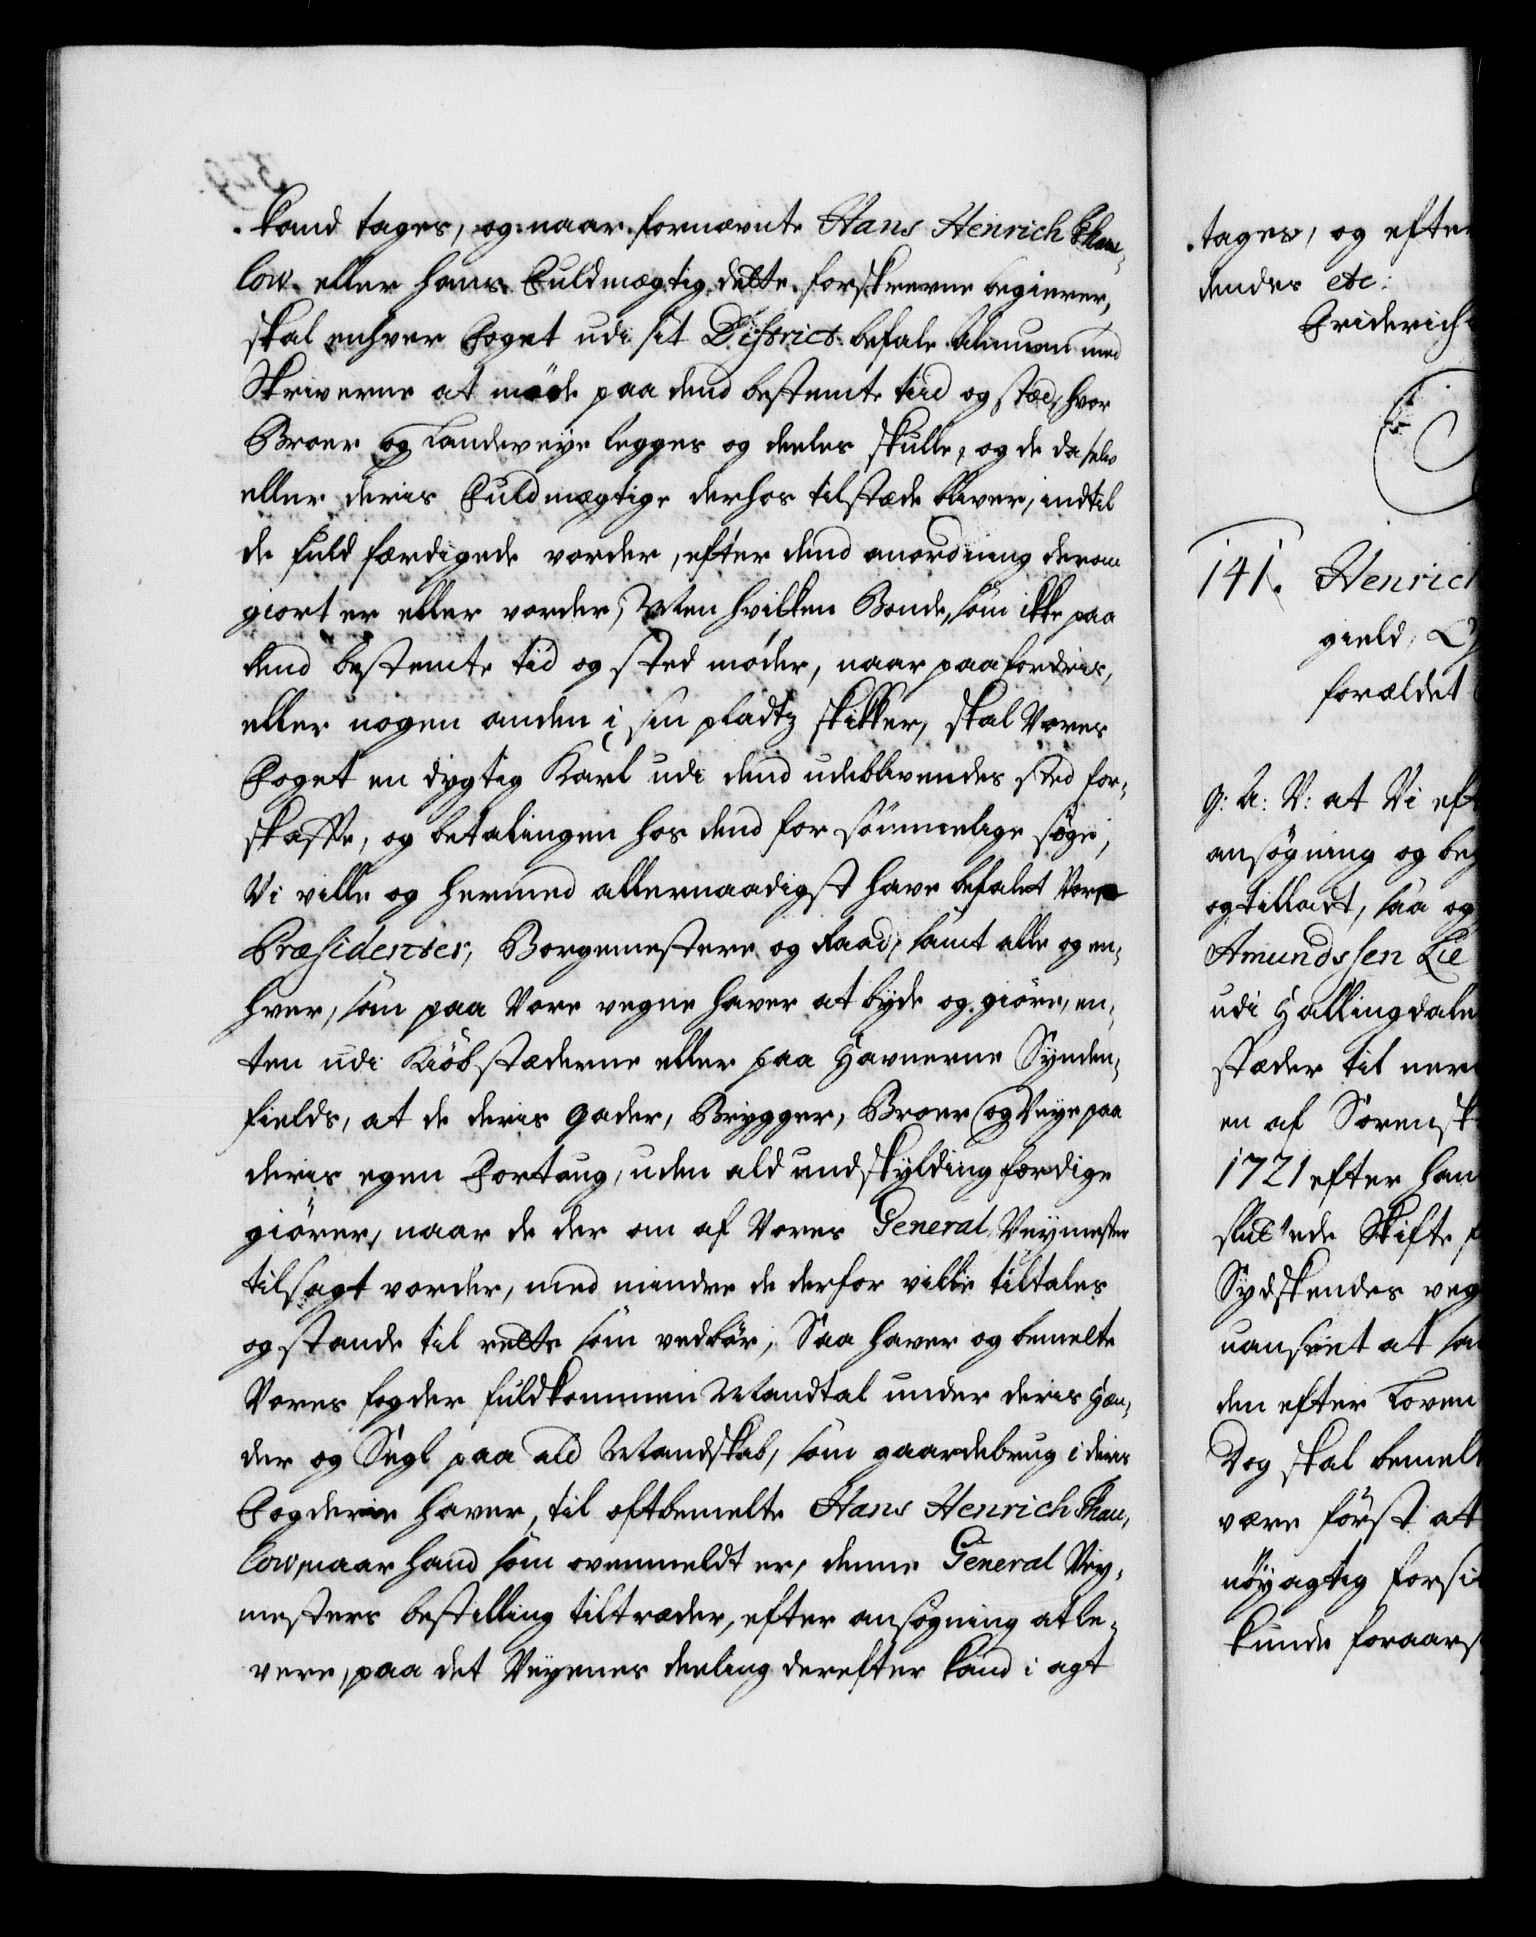 kand tages, og naar fornævnte Hans Henrich Thau-
low eller hans Fuldmægtig dette forskrevne begierer,
skal enhver Foget udi sit District befale Almuen med
Skriverne at møde paa dend bestemte tiid og stæd, hvor
Broer og Landeveye legges og deeles skulle, og de da selv
eller deris Fuldmægtige derhos tilstæde bliver, indtil
de fuldfærdigede vorder, efter dend anordning derom
giort er eller vorder, Men hvilken Bonde, som ikke paa
dend bestemte tid og sted møder, naar paafordris,
eller nogen anden i sin pladtz skikker, skal Vores
Foget en dygtig Karl udi dend udeblivendes sted for-
skaffe, og betalingen hos dend forsømmelige søge,
Vi ville og hermed allernaadigst have befalet Vore
Præsidenter, Borgemestere og Raad, samt alle og en-
hver, som paa Vore vegne haver at byde og giøre, en-
ten udi Kiøbstæderne eller paa Havnerne Synden-
fields, at de deris gader, Brygger, Broer og Veye paa
deris egen Fortaug, uden ald undskylding færdige
giører, naar de der om af Vores General Veymester
tilsagt vorder, med mindre de derfor ville tiltales
og stande til rette som vedbør, Saa haver og bemelte
Vores fogder fuldkommen Mandtal under deris Hæn-
der og Segl paa ald Mandskab, som gaardebrug i deris
Fogderie haver, til oftbemelte Hans Henrich Thau-
low, naar hand som ovenmeldt er, denne General Vey-
mesters bestilling tiltræder, efter ansøgning at le-
vere, paa det Veyenes deeling derefter kand i agt
tages, og efter
dendes etc:
Friderich
141. Henrich
gield,
forældet
g: A: V: at Vi eft
ansøgning og beg
og tilladt, saa og
Amundssen Lie
udi Hallingdale
stæder til
en af Sørensk
1721 efter han
sluttede Skifte
Sydskendes veg
uanseet at
den efter Loven
Dog skal bemelt
være først at
nøyagtig forsi
kunde foraars